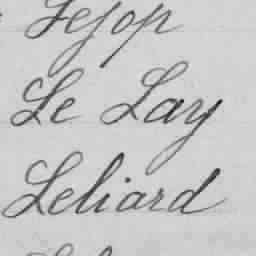 Lejop
Le Lay
Leliard